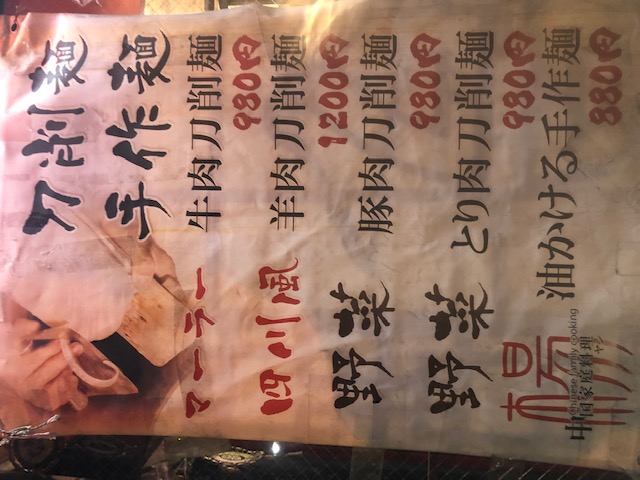 刀削麺
手作麺
マーラー 牛肉刀削麺
980円
四川風 羊肉刀削麺
1200円
野菜 豚肉刀削麺
980円
野菜 とり肉刀削麺
980円
油かける手作麺
880円
楊
Chinese family cooking
中国家庭料理
ヤン